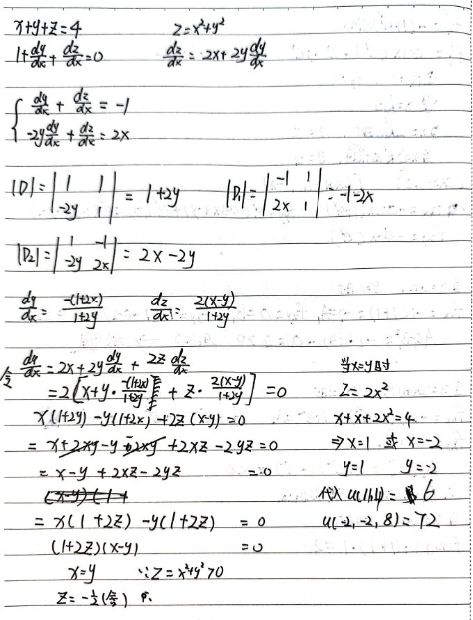 x+y+z=4    z=x²+y²
1+dy/dx+dz/dx=0    dz/dx=2x+2y dy/dx
{ dy/dx + dz/dx = -1
-2y dy/dx + dz/dx = 2x
|D|=| 1 1 ; -2y 1 | = 1+2y    |D₁|=| -1 1 ; 2x 1 | = -1-2x
|D₂|=| 1 -1 ; -2y 2x | = 2x-2y
dy/dx = -(1+2x)/(1+2y)    dz/dx = 2(x-y)/(1+2y)
令 du/dx = 2x+2y dy/dx + 2z dz/dx
=2[x+y·-(1+2x)/(1+2y) + z·2(x-y)/(1+2y)] =0
x(1+2y)-y(1+2x)+2z(x-y)=0
= x+2xy-y-2xy+2xz-2yz=0
= x-y+2xz-2yz =0
(x-y)(1+
= x(1+2z)-y(1+2z) =0
(1+2z)(x-y) =0
x=y    ∵z=x²+y²>0
z=-½(舍)
当x=y时
z=2x²
x+x+2x²=4
⇒x=1 或 x=-2
y=1    y=-2
代入 u(1,1,2)= 6
u(-2,-2,8)=72